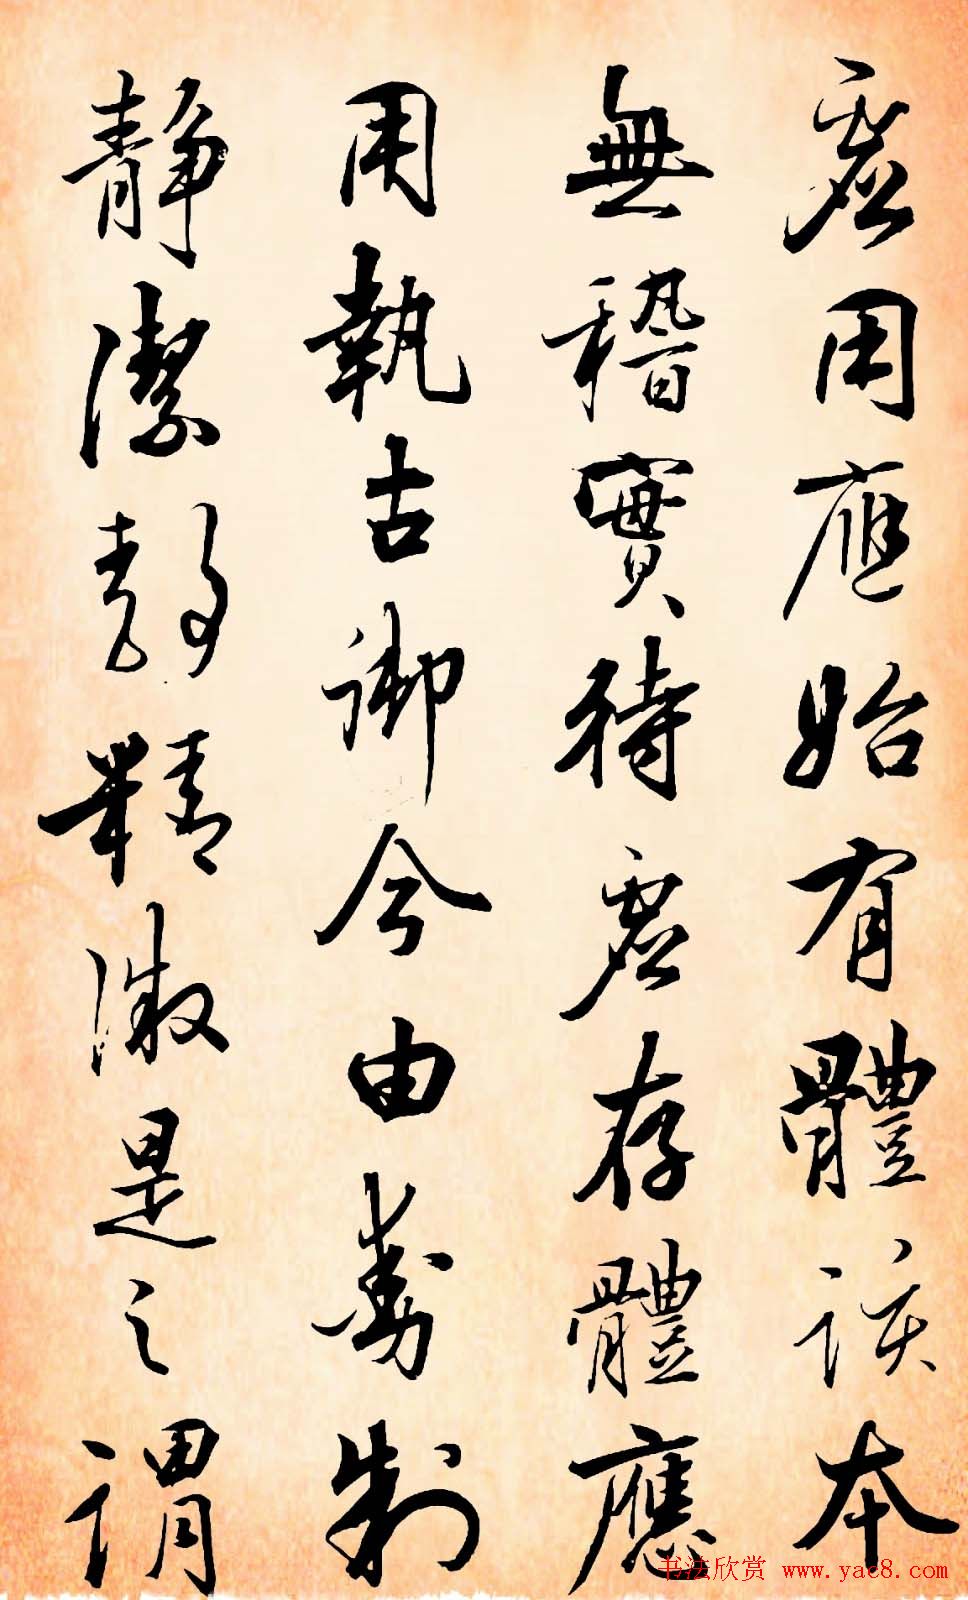 虛用應始有體該本
無稽實待虛存體應
用執古御今由動制
靜潔靜精微是之謂
书法欣赏 www.yac8.com